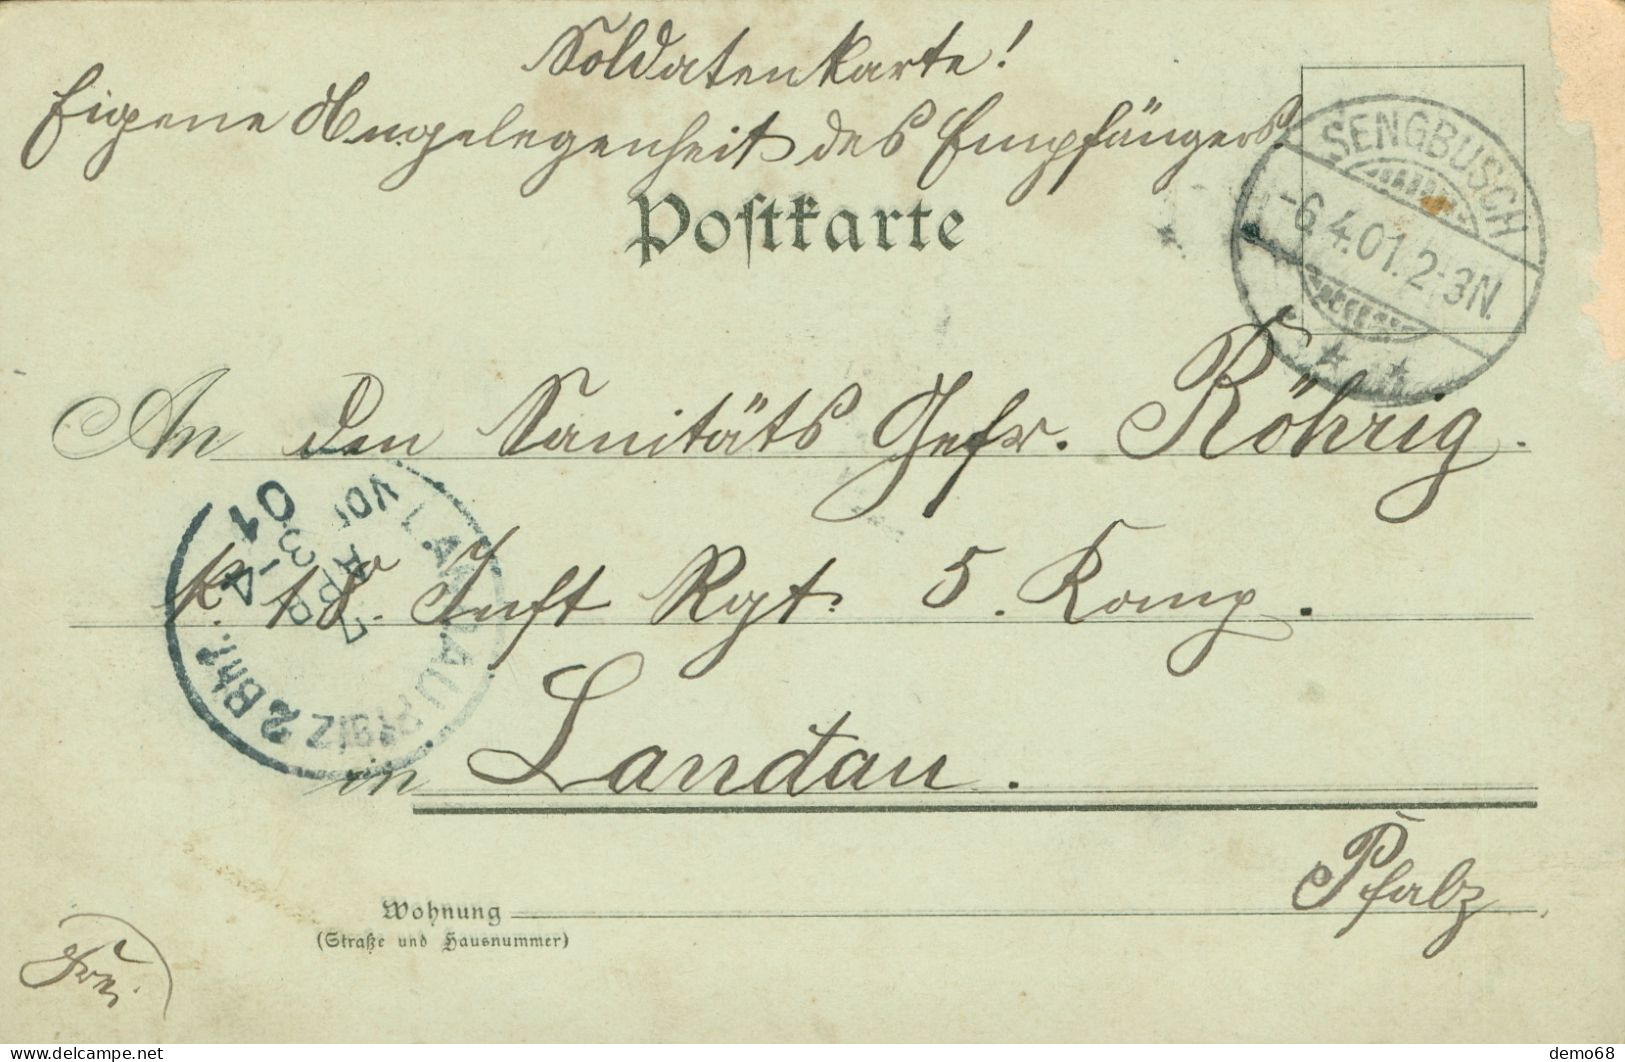 Soldatenkarte!
Eigene Angelegenheit des Empfängers.
Postkarte
SENGBUSCH
-6.4.01.2-3N.
An den Sanitäts Gefr. Röhrig.
k. 18. Inft Rgt. 5. Komp.
LANDAU Pfalz 2 Bhf.
7 APR
3-4
01
in Landau.
Pfalz
Wohnung
(Straße und Hausnummer)
demo68